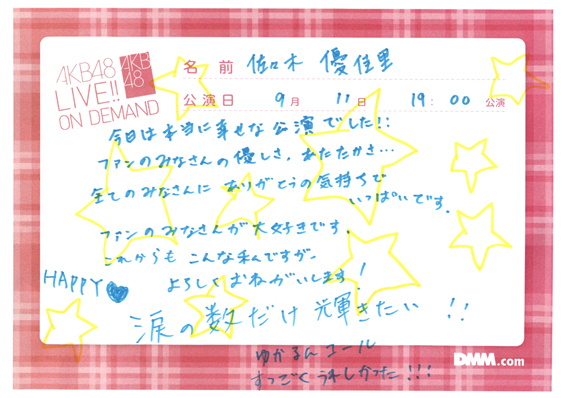 AKB48
LIVE!!
ON DEMAND
AKB
48
名前 佐々木 優佳里
公演日 9月 11日 19:00 公演
今日は本当に幸せな公演でした!!
ファンのみなさんの優しさ、あたたかさ…
全てのみなさんに ありがとうの気持ちで
いっぱいです。
ファンのみなさんが大好きです。
これからも こんな私ですが、
よろしくおねがいします!
HAPPY
涙の数だけ 輝きたい !!
ゆかるんコール
すっごくうれしかった!!!
DMM.com